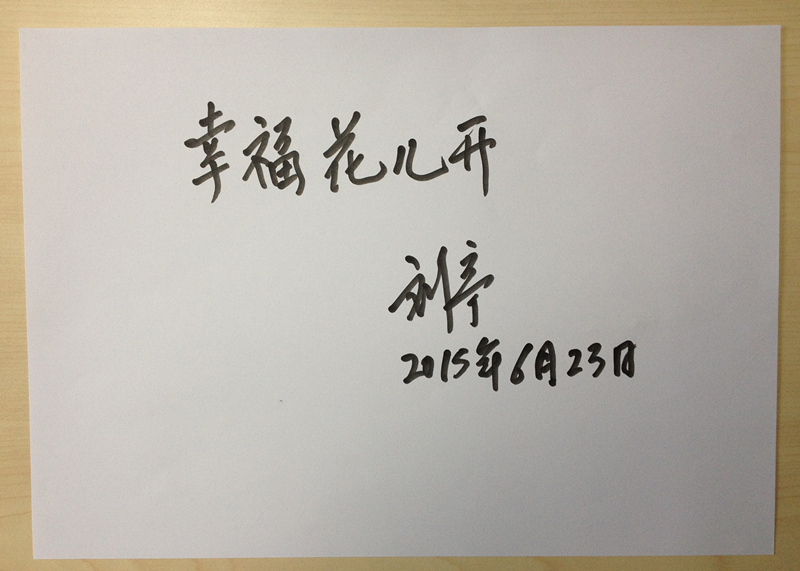 幸福花儿开
刘亭
2015年6月23日